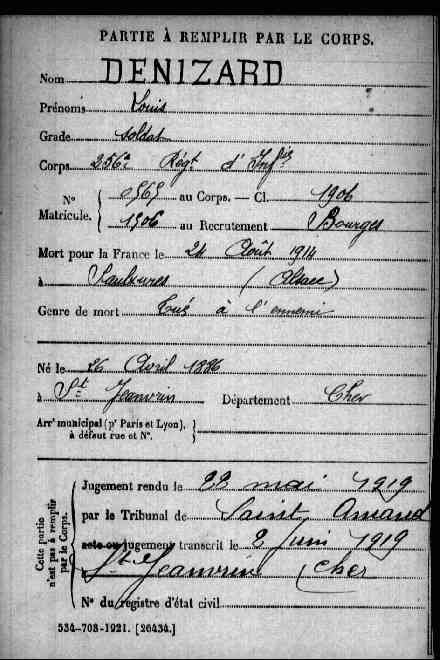 PARTIE À REMPLIR PAR LE CORPS.
Nom DENIZARD
Prénoms Louis
Grade soldat
Corps 256e Régt d'Infie
N° Matricule. { 0969 au Corps. — Cl. 1906
1906 au Recrutement Bourges
Mort pour la France le 24 Août 1914
à Saulxures (Alsace)
Genre de mort Tué à l'ennemi
Né le 26 Avril 1886
à St Jeanvrin Département Cher
Arrt municipal (pr Paris et Lyon),
à défaut rue et N°.
Cette partie n'est pas à remplir par le Corps.
Jugement rendu le 22 mai 1919
par le Tribunal de Saint Amand
acte ou jugement transcrit le 2 Juni 1919
Ste Jeanvrin Cher
N° du registre d'état civil
534-708-1921. [26434.]